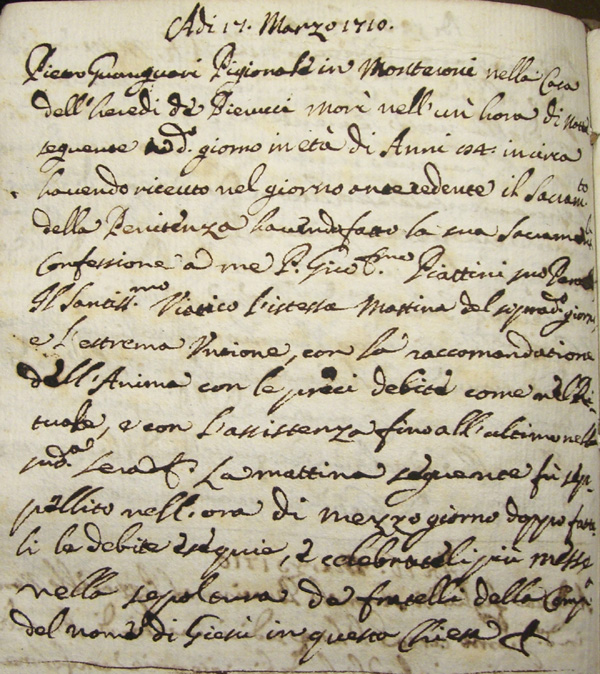 Adi 17. Marzo 1710.
Pietro Guanguari Pigionale in Monteroni nella Casa
dell'heredi de Pierucci morì nell'un hora di notte
seguente dº. giorno in età di Anni in circa
havendo riceuto nel giorno antecedente il Sacramto
della Penitenza havendo fatto la sua Sacram
Confessione a me P. Piattini suo
Il Santissmo Viatico l'istessa Mattina del sopradº giorno
e l'estrema Unzione, con la raccomandatione
dell'Anima con le preci debite come nel Ri-
tuale, e con l'assistenza fino all'ultimo nella
sudª. sera La mattina seguente fù sep-
pellito nell'ora di mezzo giorno doppo fatto-
li le debite esequie, e celebrateli più messe
nella sepoltura de fratelli della Compª
del nome di Giesù in questa Chiesa